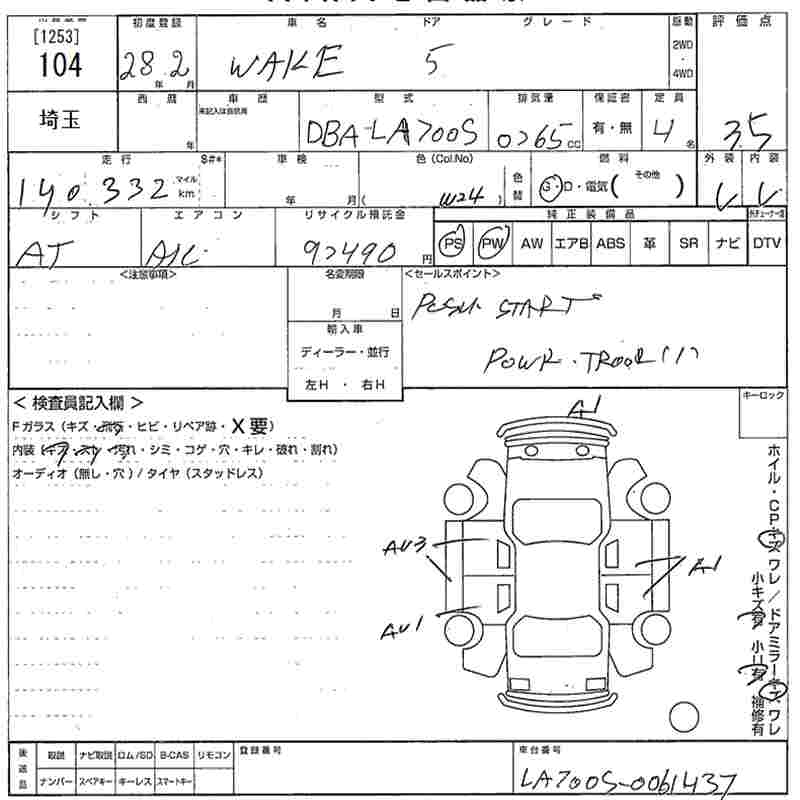 [1253]
104
初度登録
車名 ドア グレード
駆動
評価点
28.2
年 月
WAKE 5
2WD
・
4WD
3.5
埼玉
西暦
年
車歴
未記入は自家用
型式
DBA-LA700S
排気量
0765 cc
保証書
有・無
定員
4 名
走行
140,332
マイル
km
S#*
車検
年 月
色 (Col.No)
( W24 )
色替
燃料
G・D・電気 ( その他 )
外装 内装
シフト
AT
エアコン
A/C
リサイクル預託金
97490 円
純正装備品
PS PW AW エアB ABS 革 SR ナビ DTV
<注意事項>
名変期限
月 日
輸入車
ディーラー・並行
左H ・ 右H
<セールスポイント>
PUSH START
POWR. TROOR(1)
< 検査員記入欄 >
Fガラス (キズ・飛石・ヒビ・リペア跡・X要)
内装 (キズ・スレ・汚れ・シミ・コゲ・穴・キレ・破れ・割れ)
オーディオ (無し・穴) / タイヤ (スタッドレス)
キーロック
A1
AU3
AU1
A1
ホイル・CP・キズ ワレ / ドアミラーキズ ワレ
小キズ有 小U有 補修有
後送品
取説 ナビ取説 ロム/SD B-CAS リモコン
ナンバー スペアキー キーレス スマートキー
登録番号
車台番号
LA700S-0061437